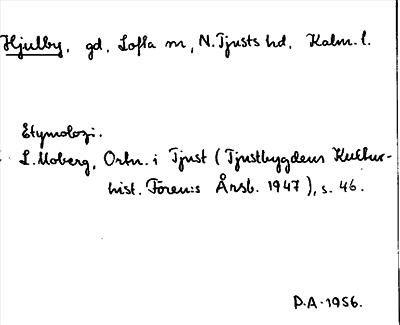 Hjulby, gd, Lofta sn, N. Tjusts hd, Kalm. l.
Etymologi.
L. Moberg, Ortn. i Tjust (Tjustbygdens Kultur-
hist. Fören:s Årsb. 1947), s. 46.
P.A. 1956.